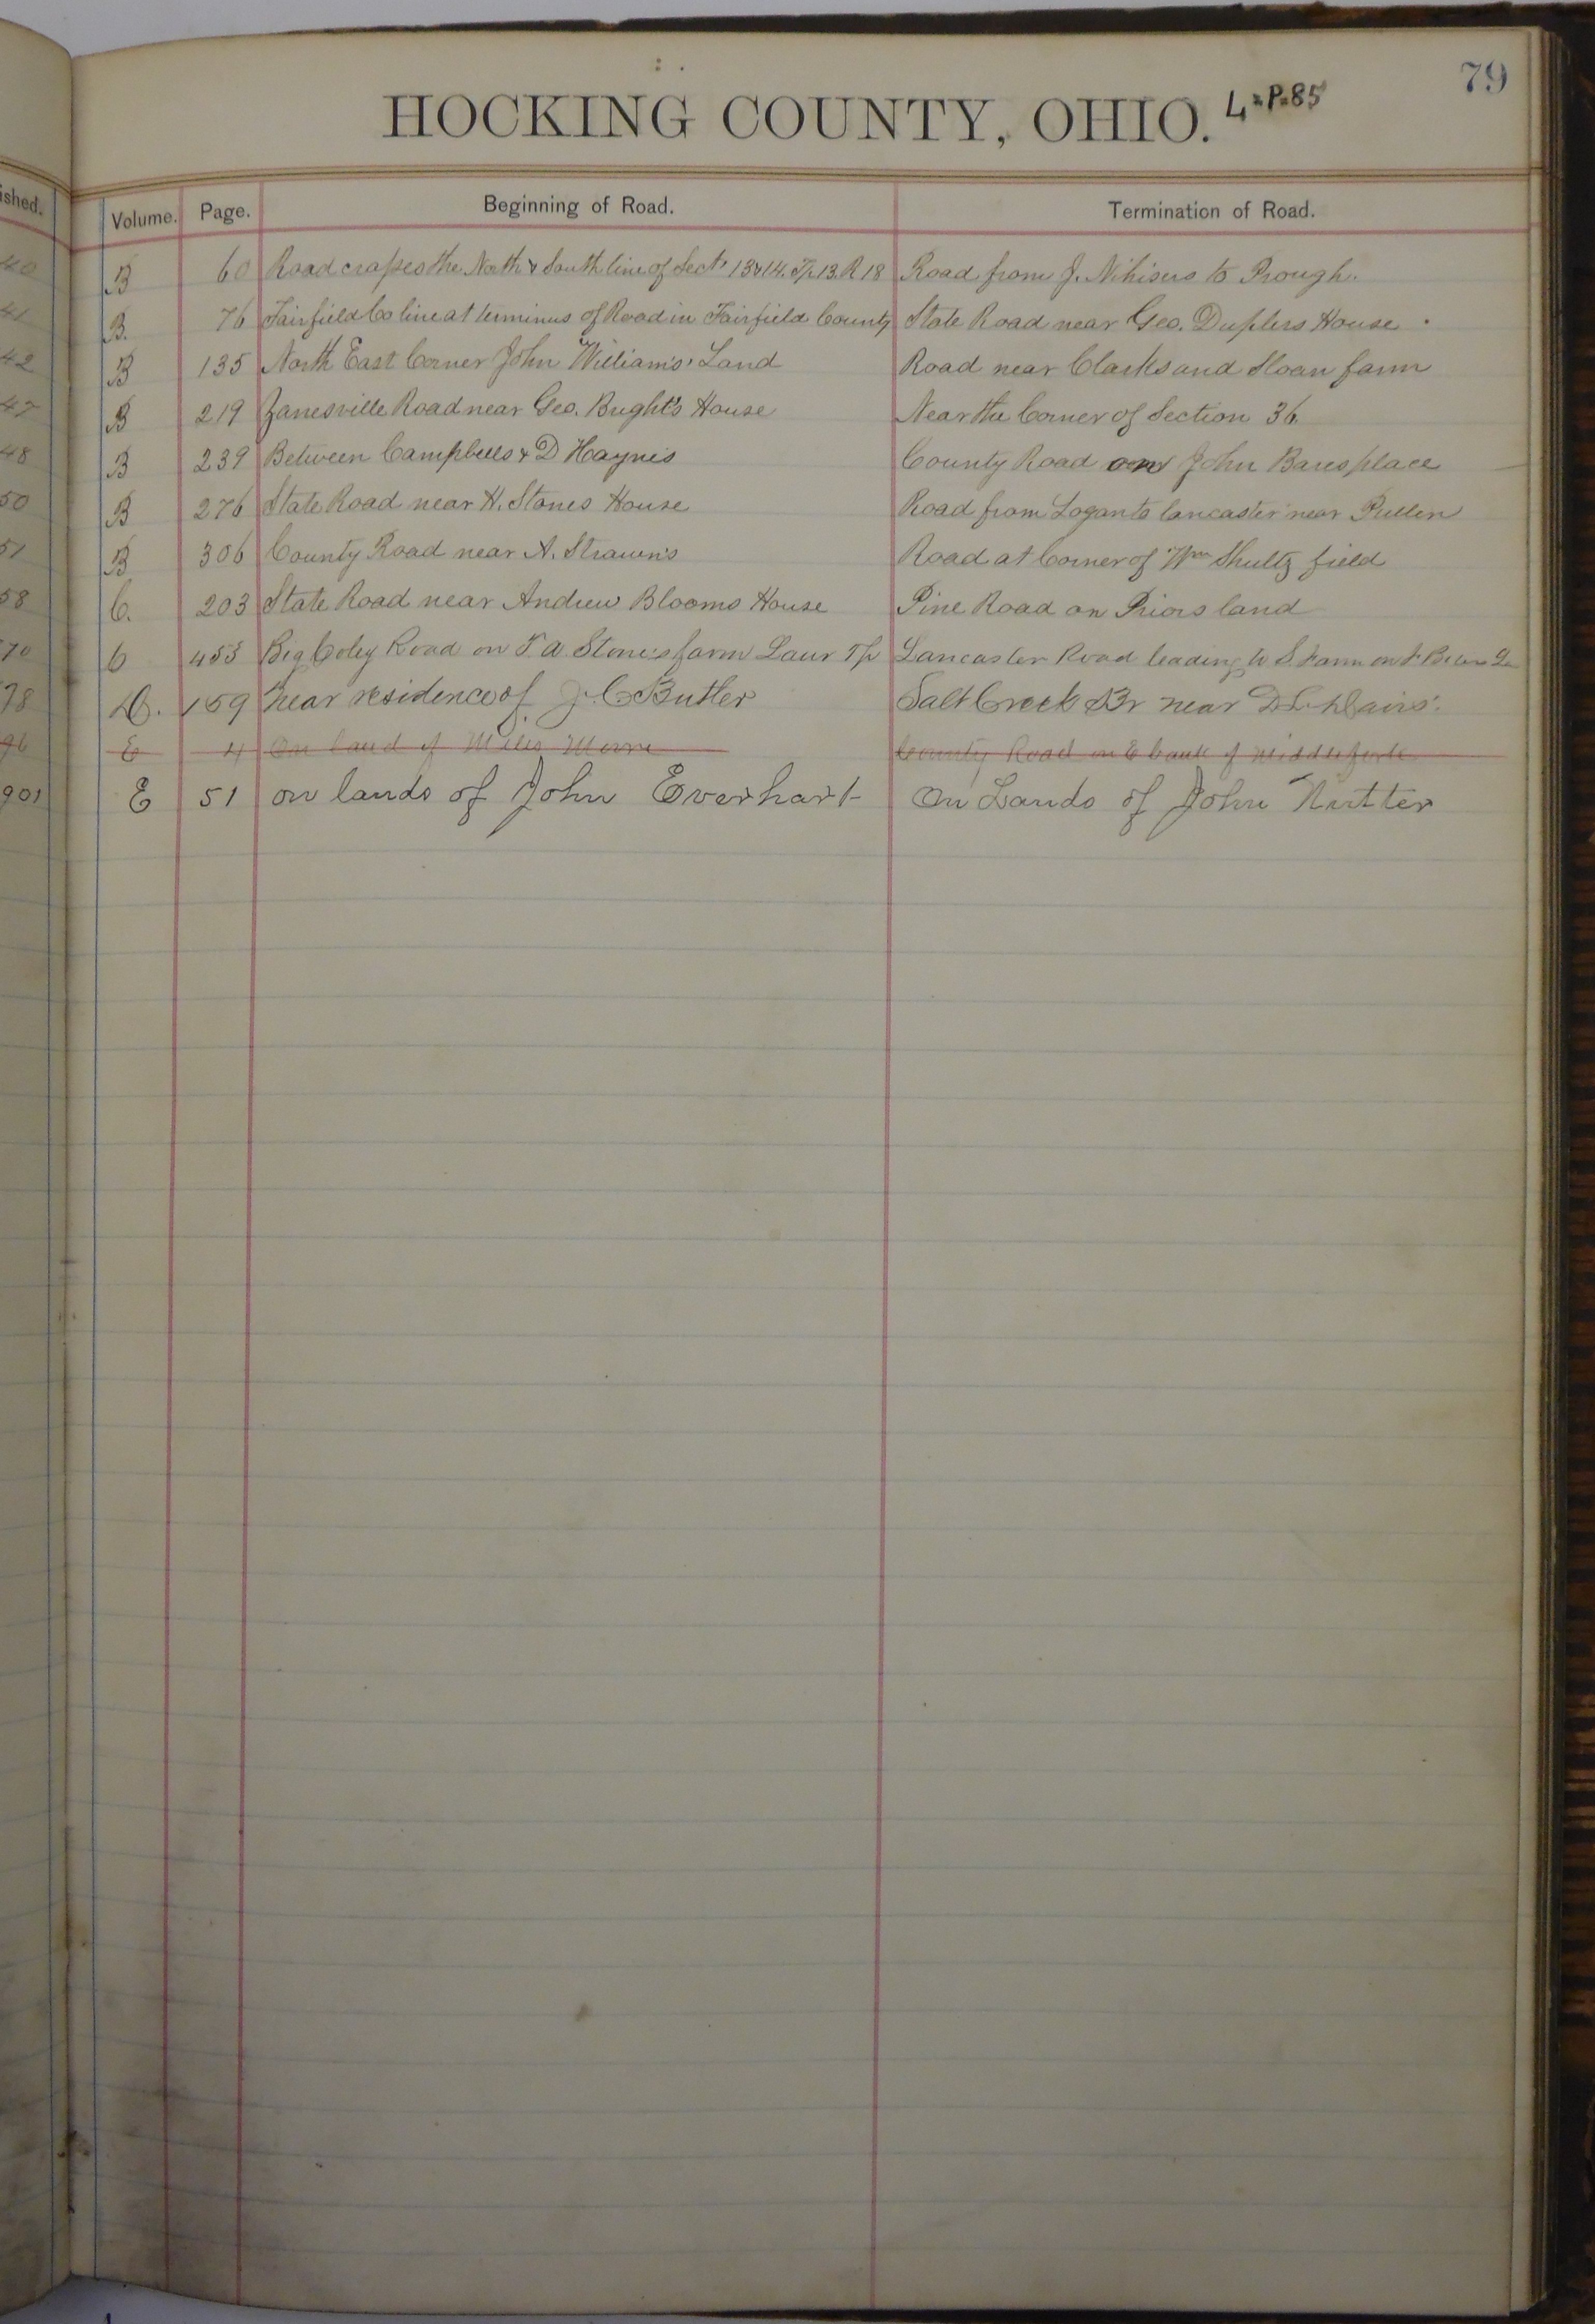 79
HOCKING COUNTY, OHIO. L=P=85
ished. Volume. Page. Beginning of Road. Termination of Road.
40 B 60 Road crosses the North & South line of Sect. 13&14. Tp. 13. R 18 Road from J. Nihisers to Prough.
41 B. 76 Fairfield Co line at terminus of Road in Fairfield County State Road near Geo. Duplers House
42 B 135 North East Corner John Williams' Land Road near Clarks and Sloan farm
47 B 219 Zanesville Road near Geo. Bright's House Near the Corner of Section 36
48 B 239 Between Campbells & D Haynes County Road on John Bares place
50 B 276 State Road near H. Stones House Road from Logan to lancaster near Pullen
51 B 306 County Road near A. Strawn's Road at Corner of Wm Shultz field
58 C. 203 State Road near Andrew Blooms House Pine Road on Priors land
70 C 455 Big Road on F. A. Stones farm Laur Tp Lancaster Road leading to S. farm on
78 D. 159 near residence of J. C. Butler Salt Creek Br near Davis'
96 E 4 On land of Miles County Road on E bank of middle fork
901 E 51 on lands of John Everhart On Lands of John Nutter